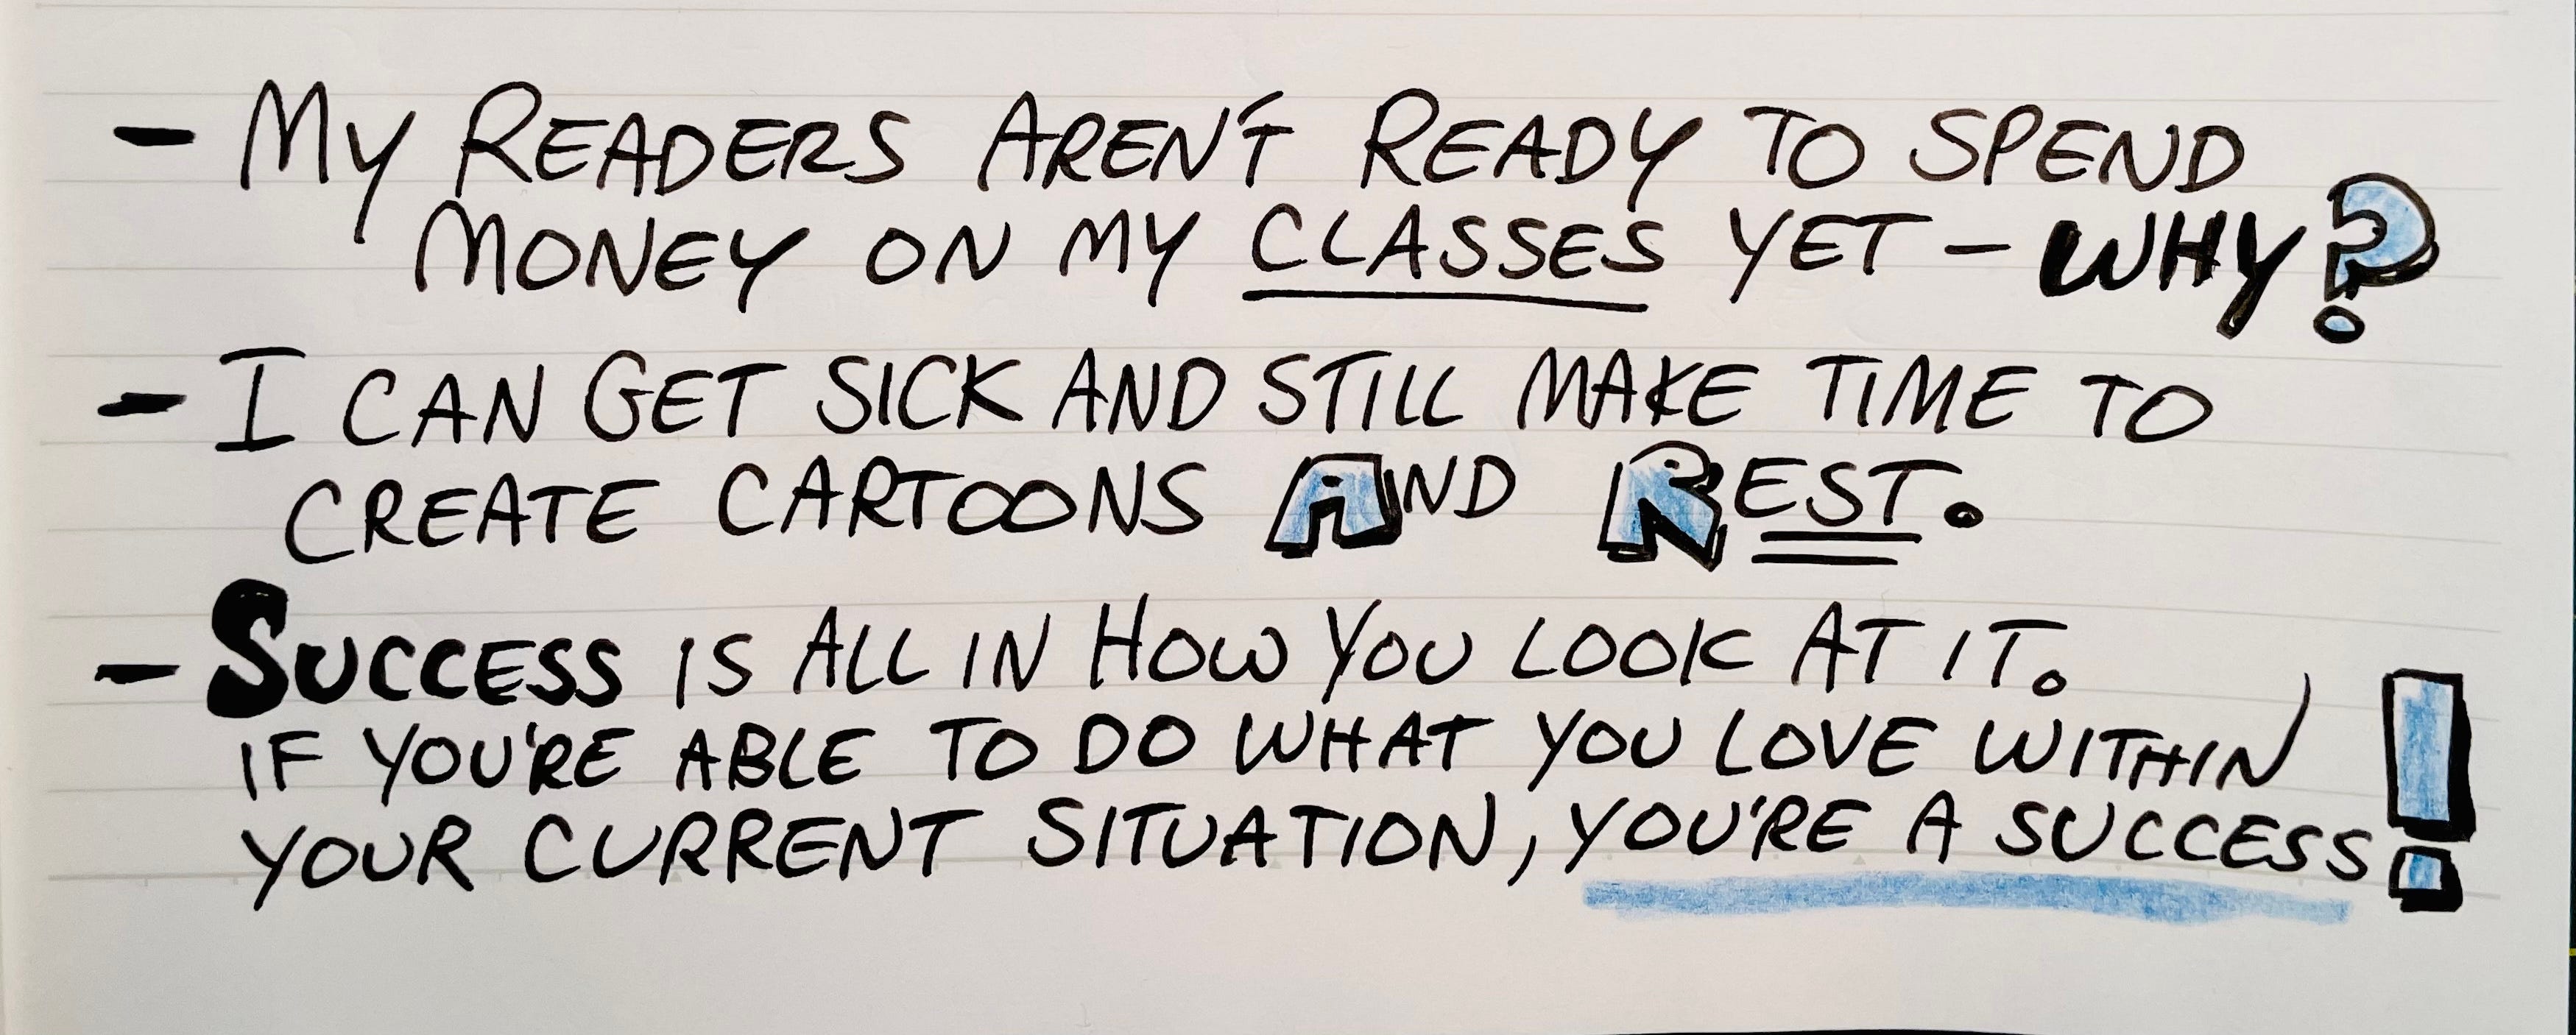 - My READERS AREN'T READY TO SPEND
MONEY ON MY CLASSES YET - WHY?
- I CAN GET SICK AND STILL MAKE TIME TO
CREATE CARTOONS AND REST.
- SUCCESS IS ALL IN HOW YOU LOOK AT IT.
IF YOU'RE ABLE TO DO WHAT YOU LOVE WITHIN
YOUR CURRENT SITUATION, YOU'RE A SUCCESS!